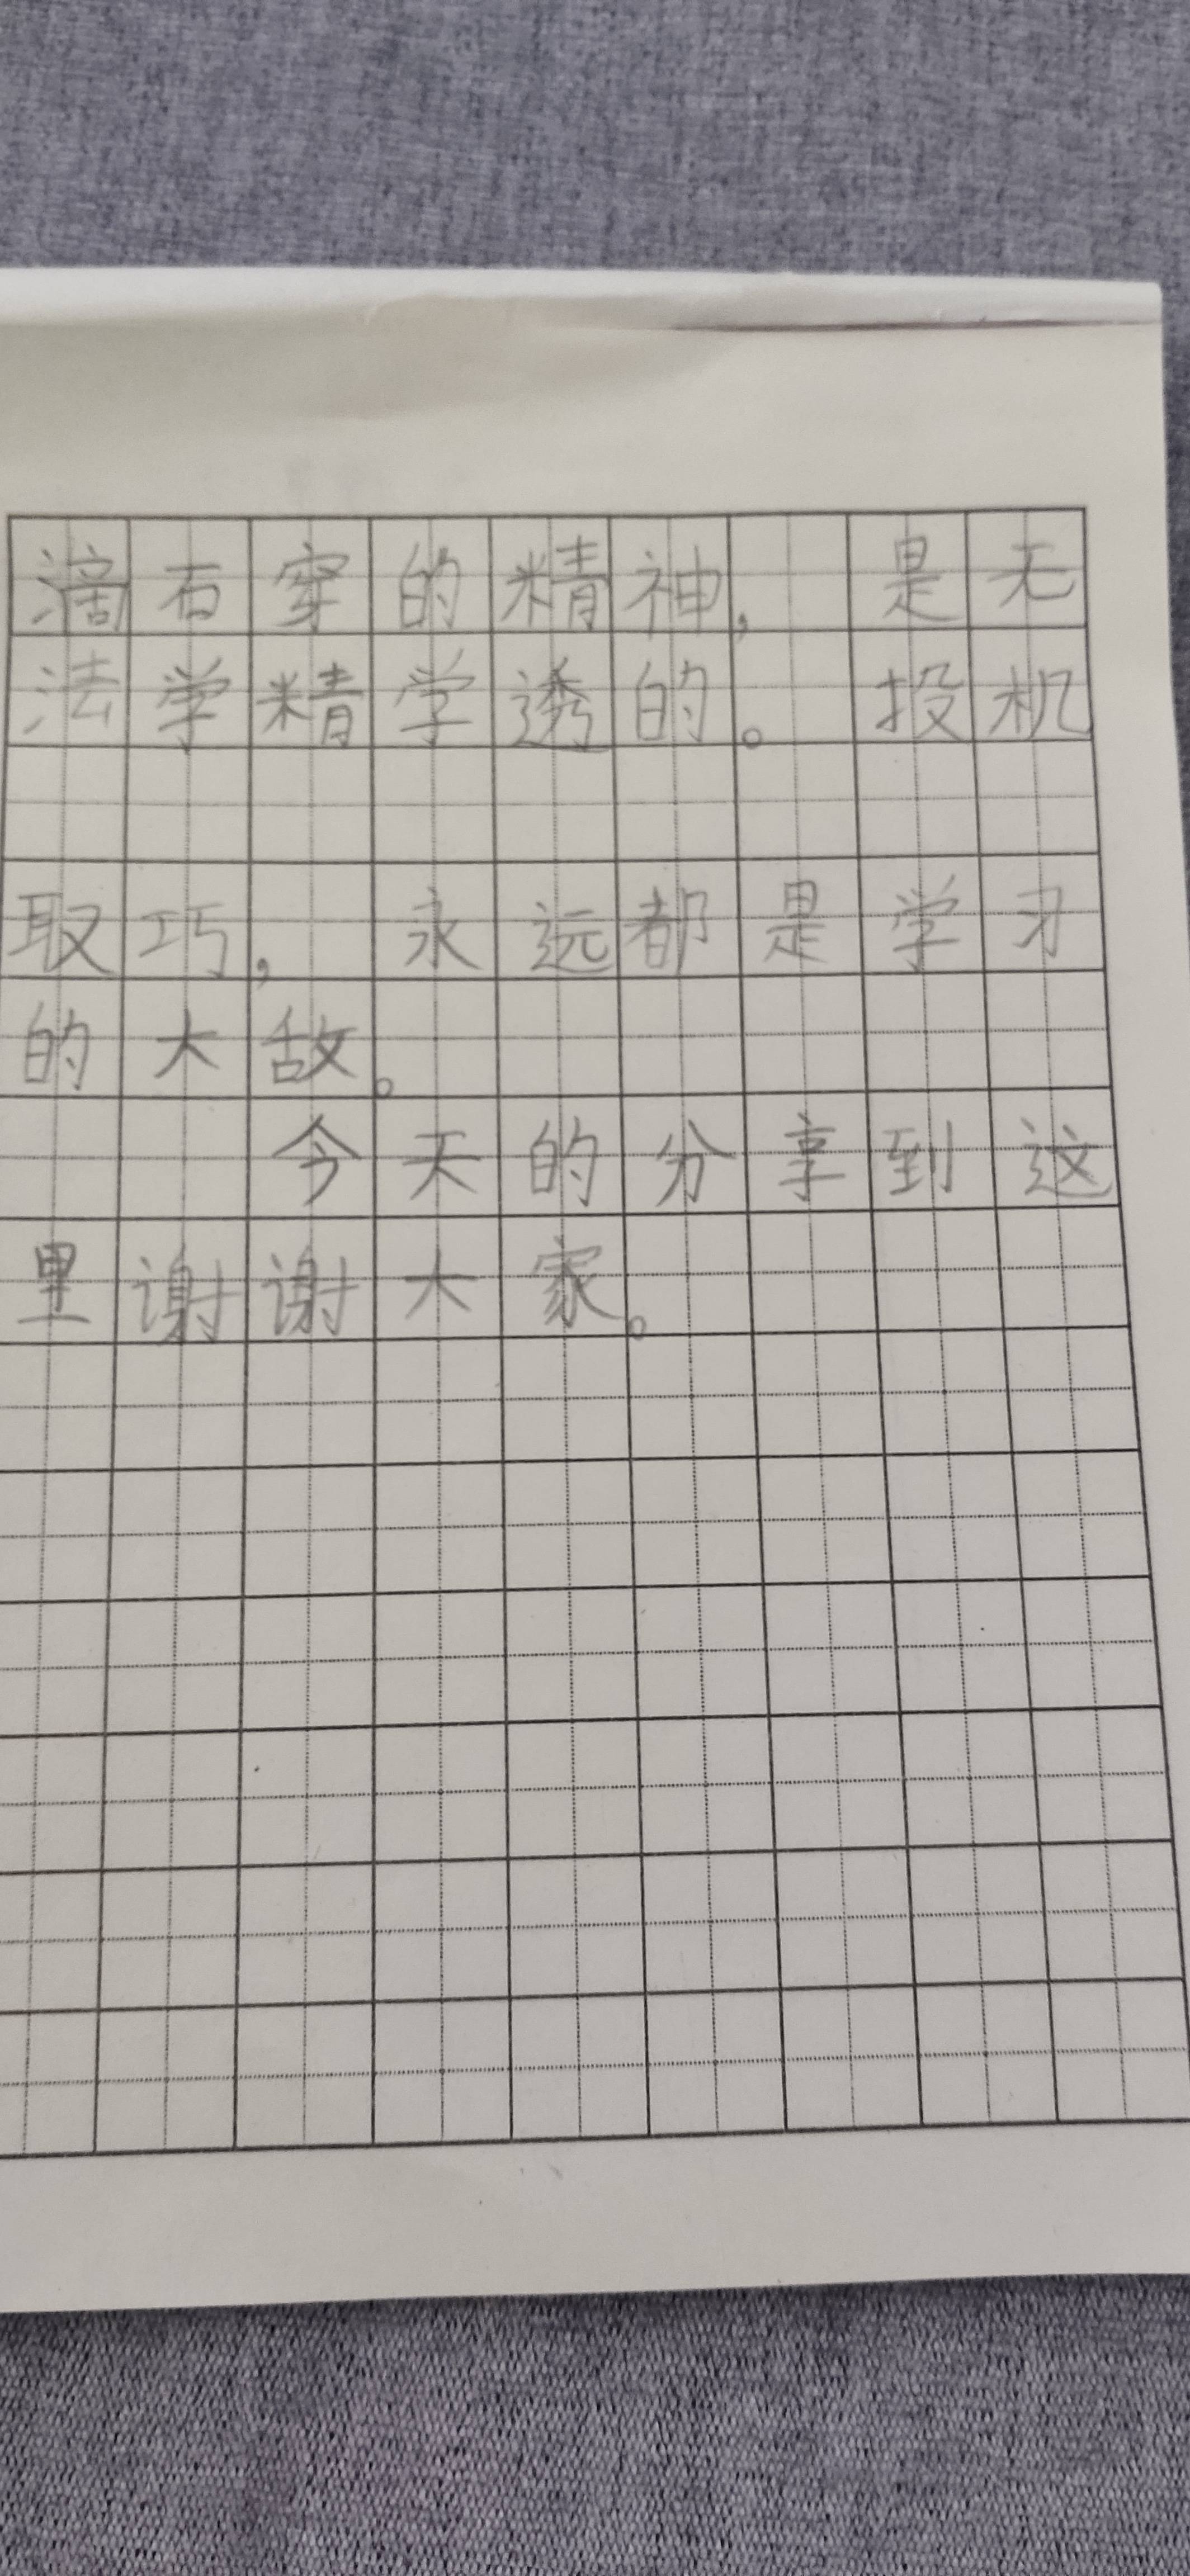 滴石穿的精神，是无
法学精学透的。投机
取巧，永远都是学习
的大敌。
今天的分享到这
里谢谢大家。